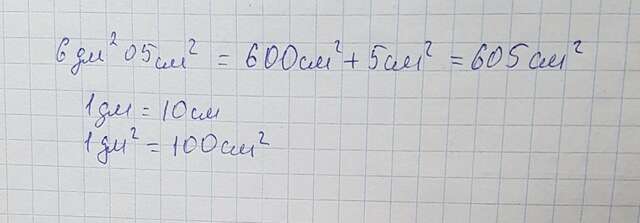 6 дм² 05 см² = 600 см² + 5 см² = 605 см²
1 дм = 10 см
1 дм² = 100 см²